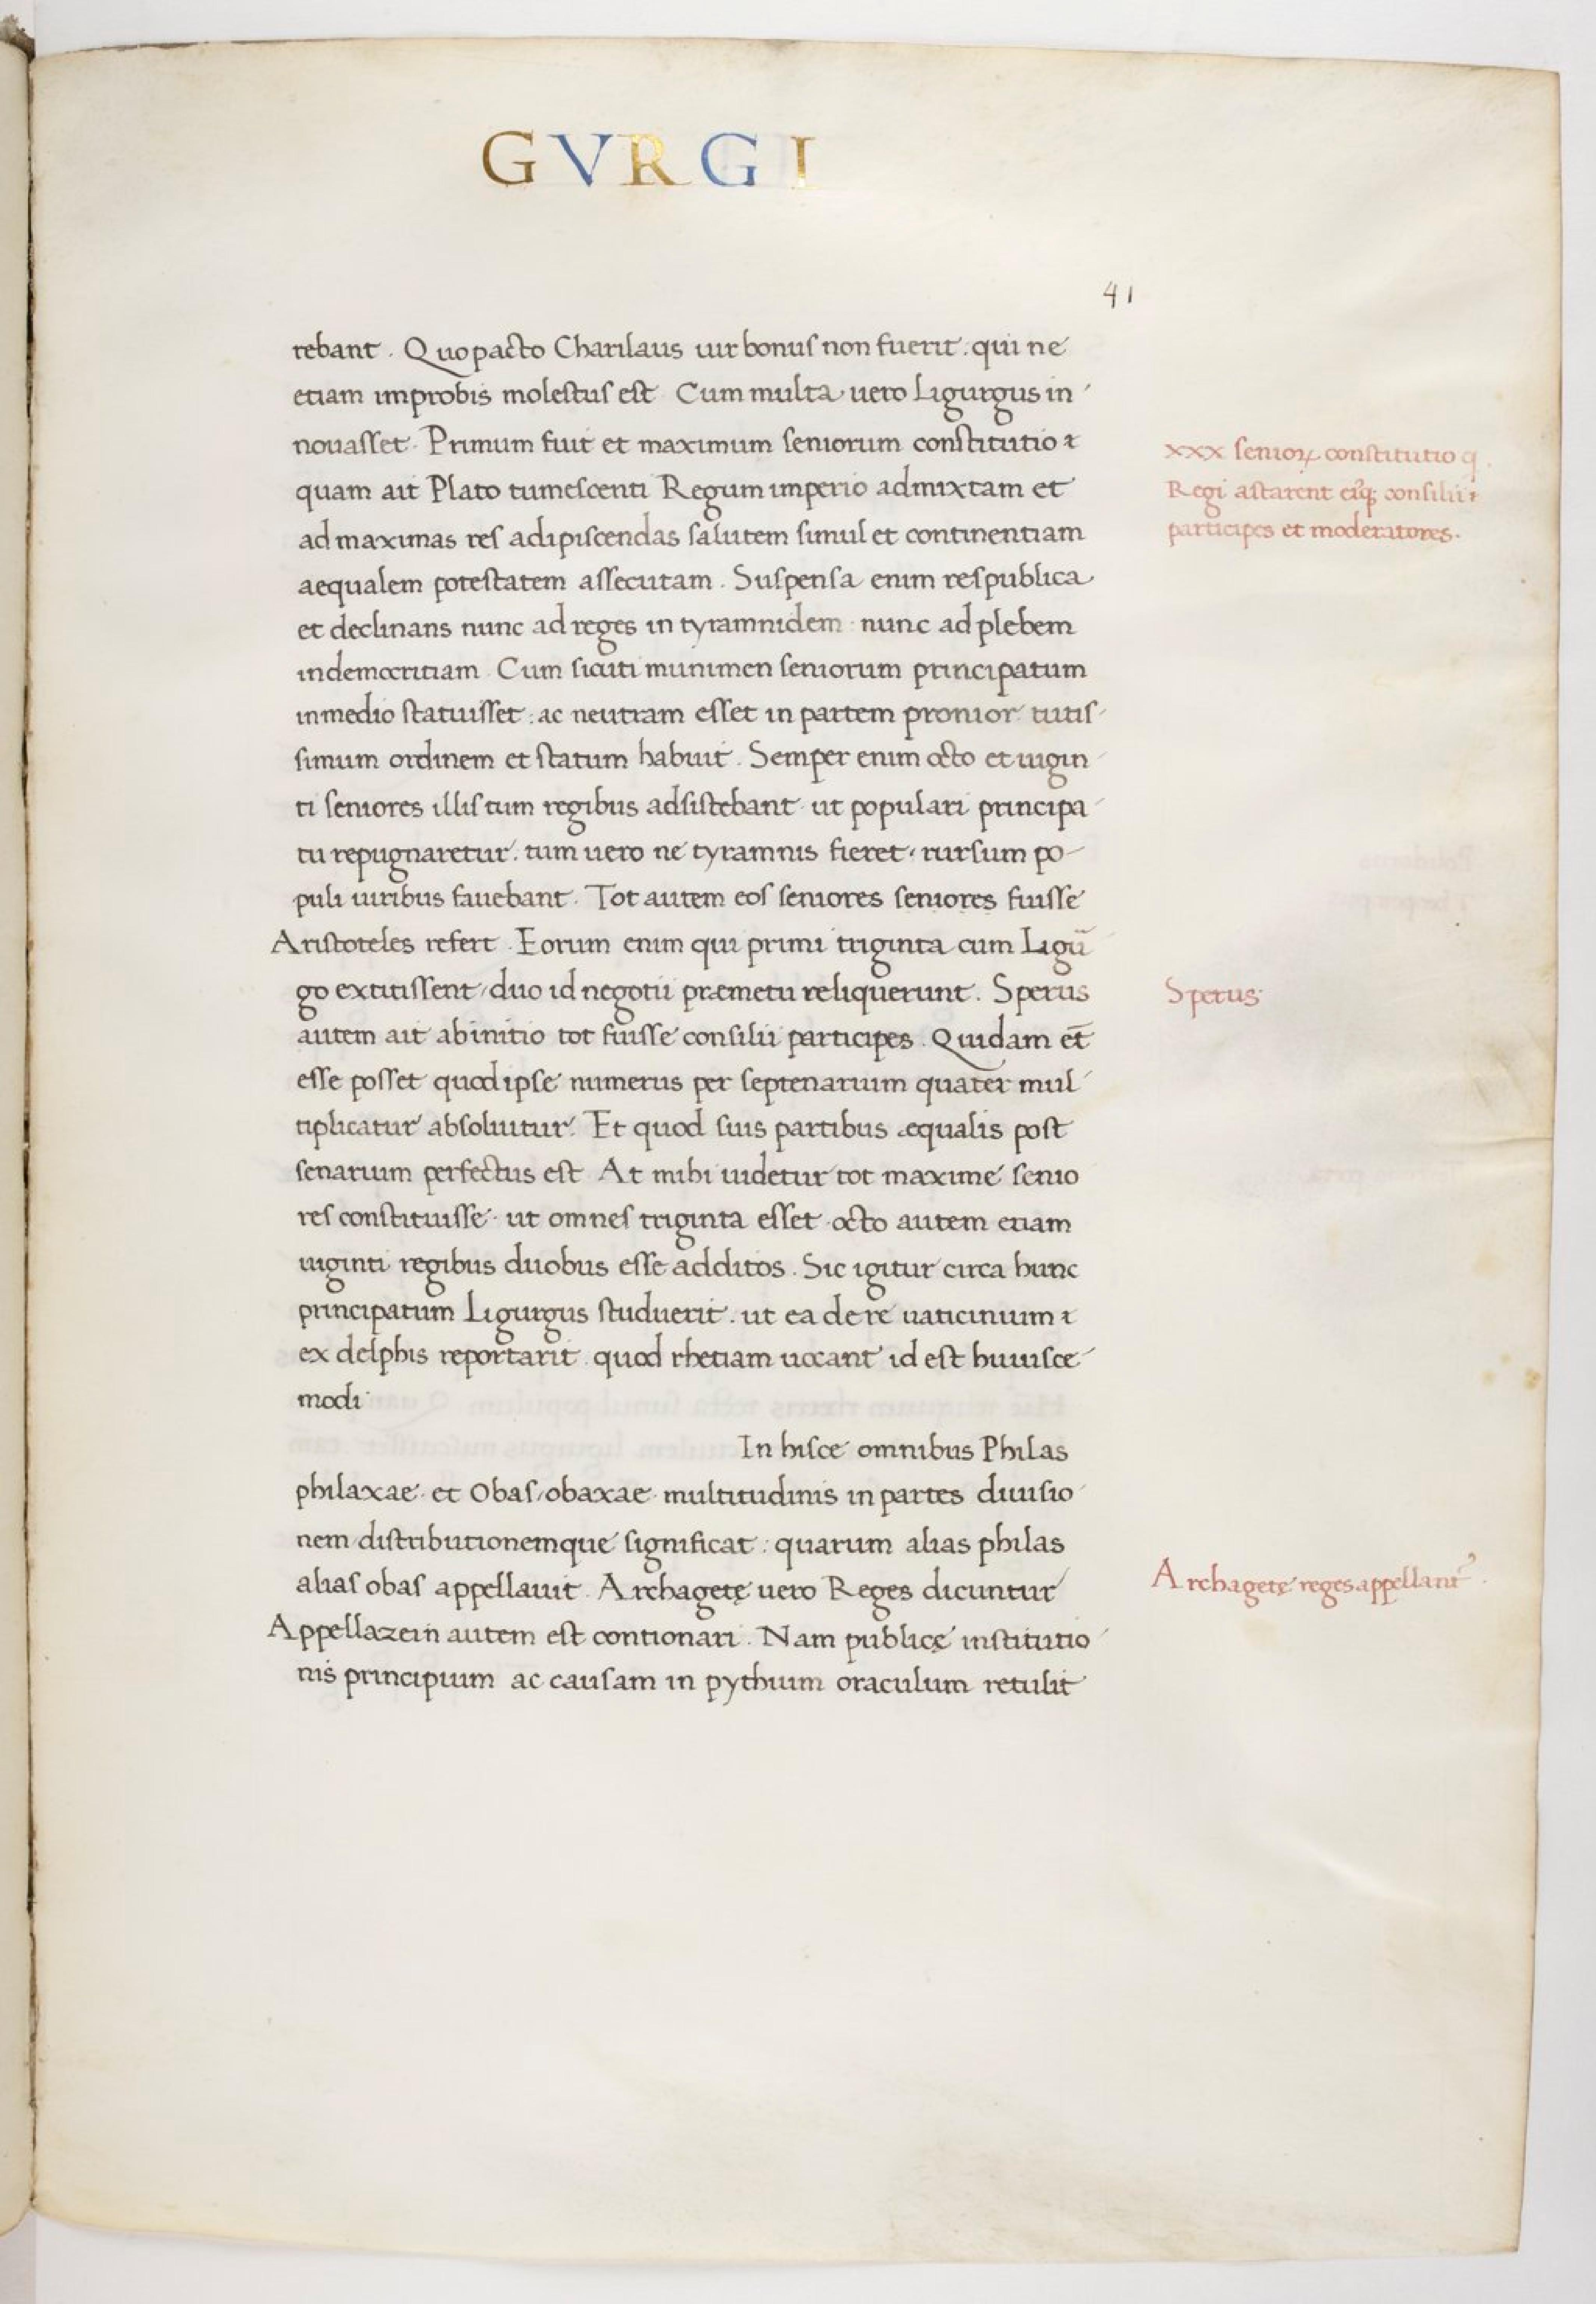 GVRGI
41
rebant. Quo pacto Charilaus uir bonus non fuerit: qui ne
etiam improbis molestus est. Cum multa uero Ligurgus in
nouasset. Primum fuit et maximum seniorum constitutio
quam ait Plato tumescenti Regum imperio admixtam et
ad maximas res adipiscendas salutem simul et continentiam
aequalem potestatem assecutam. Suspensa enim respublica
et declinans nunc ad reges in tyramnidem: nunc ad plebem
in democritiam. Cum sicuti munimen seniorum principatum
in medio statuisset: ac neutram esset in partem pronior tutis
simum ordinem et statum habuit. Semper enim octo et uigin
ti seniores illis tum regibus adsistebant ut populari principa
tu repugnaretur. tum uero ne tyramnis fieret, rursum po-
puli uiribus fauebant. Tot autem eos seniores seniores fuisse
Aristoteles refert. Eorum enim qui primi triginta cum Ligu᷒
go extitissent, duo id negotii præ metu reliquerunt. Sperus
autem ait ab initio tot fuisse consilii participes. Quidam et̄
esse posset quod ipse numerus per septenarium quater mul
tiplicatur absoluitur. Et quod suis partibus æqualis post
senarium perfectus est. At mihi uidetur tot maxime senio
res constituisse. ut omnes triginta esset. octo autem etiam
uiginti regibus duobus esse additos. Sic igitur circa hunc
principatum Ligurgus studuerit. ut ea de re uaticinium
ex delphis reportarit. quod rhetiam uocant id est huiusce
modi.
In hisce omnibus Philas
philaxae. et Obas, obaxae. multitudinis in partes diuisio
nem distributionemque significat: quarum alias philas
alias obas appellauit. Archagetę uero Reges dicuntur
Appellazein autem est contionari. Nam publicę institutio
nis principium ac causam in pythium oraculum retulit
xxx senioꝝ constitutio q̄
Regi astarent eiꝰq; consilii
participes et moderatores.
Sperus.
Archagetę reges appellantᷣ.